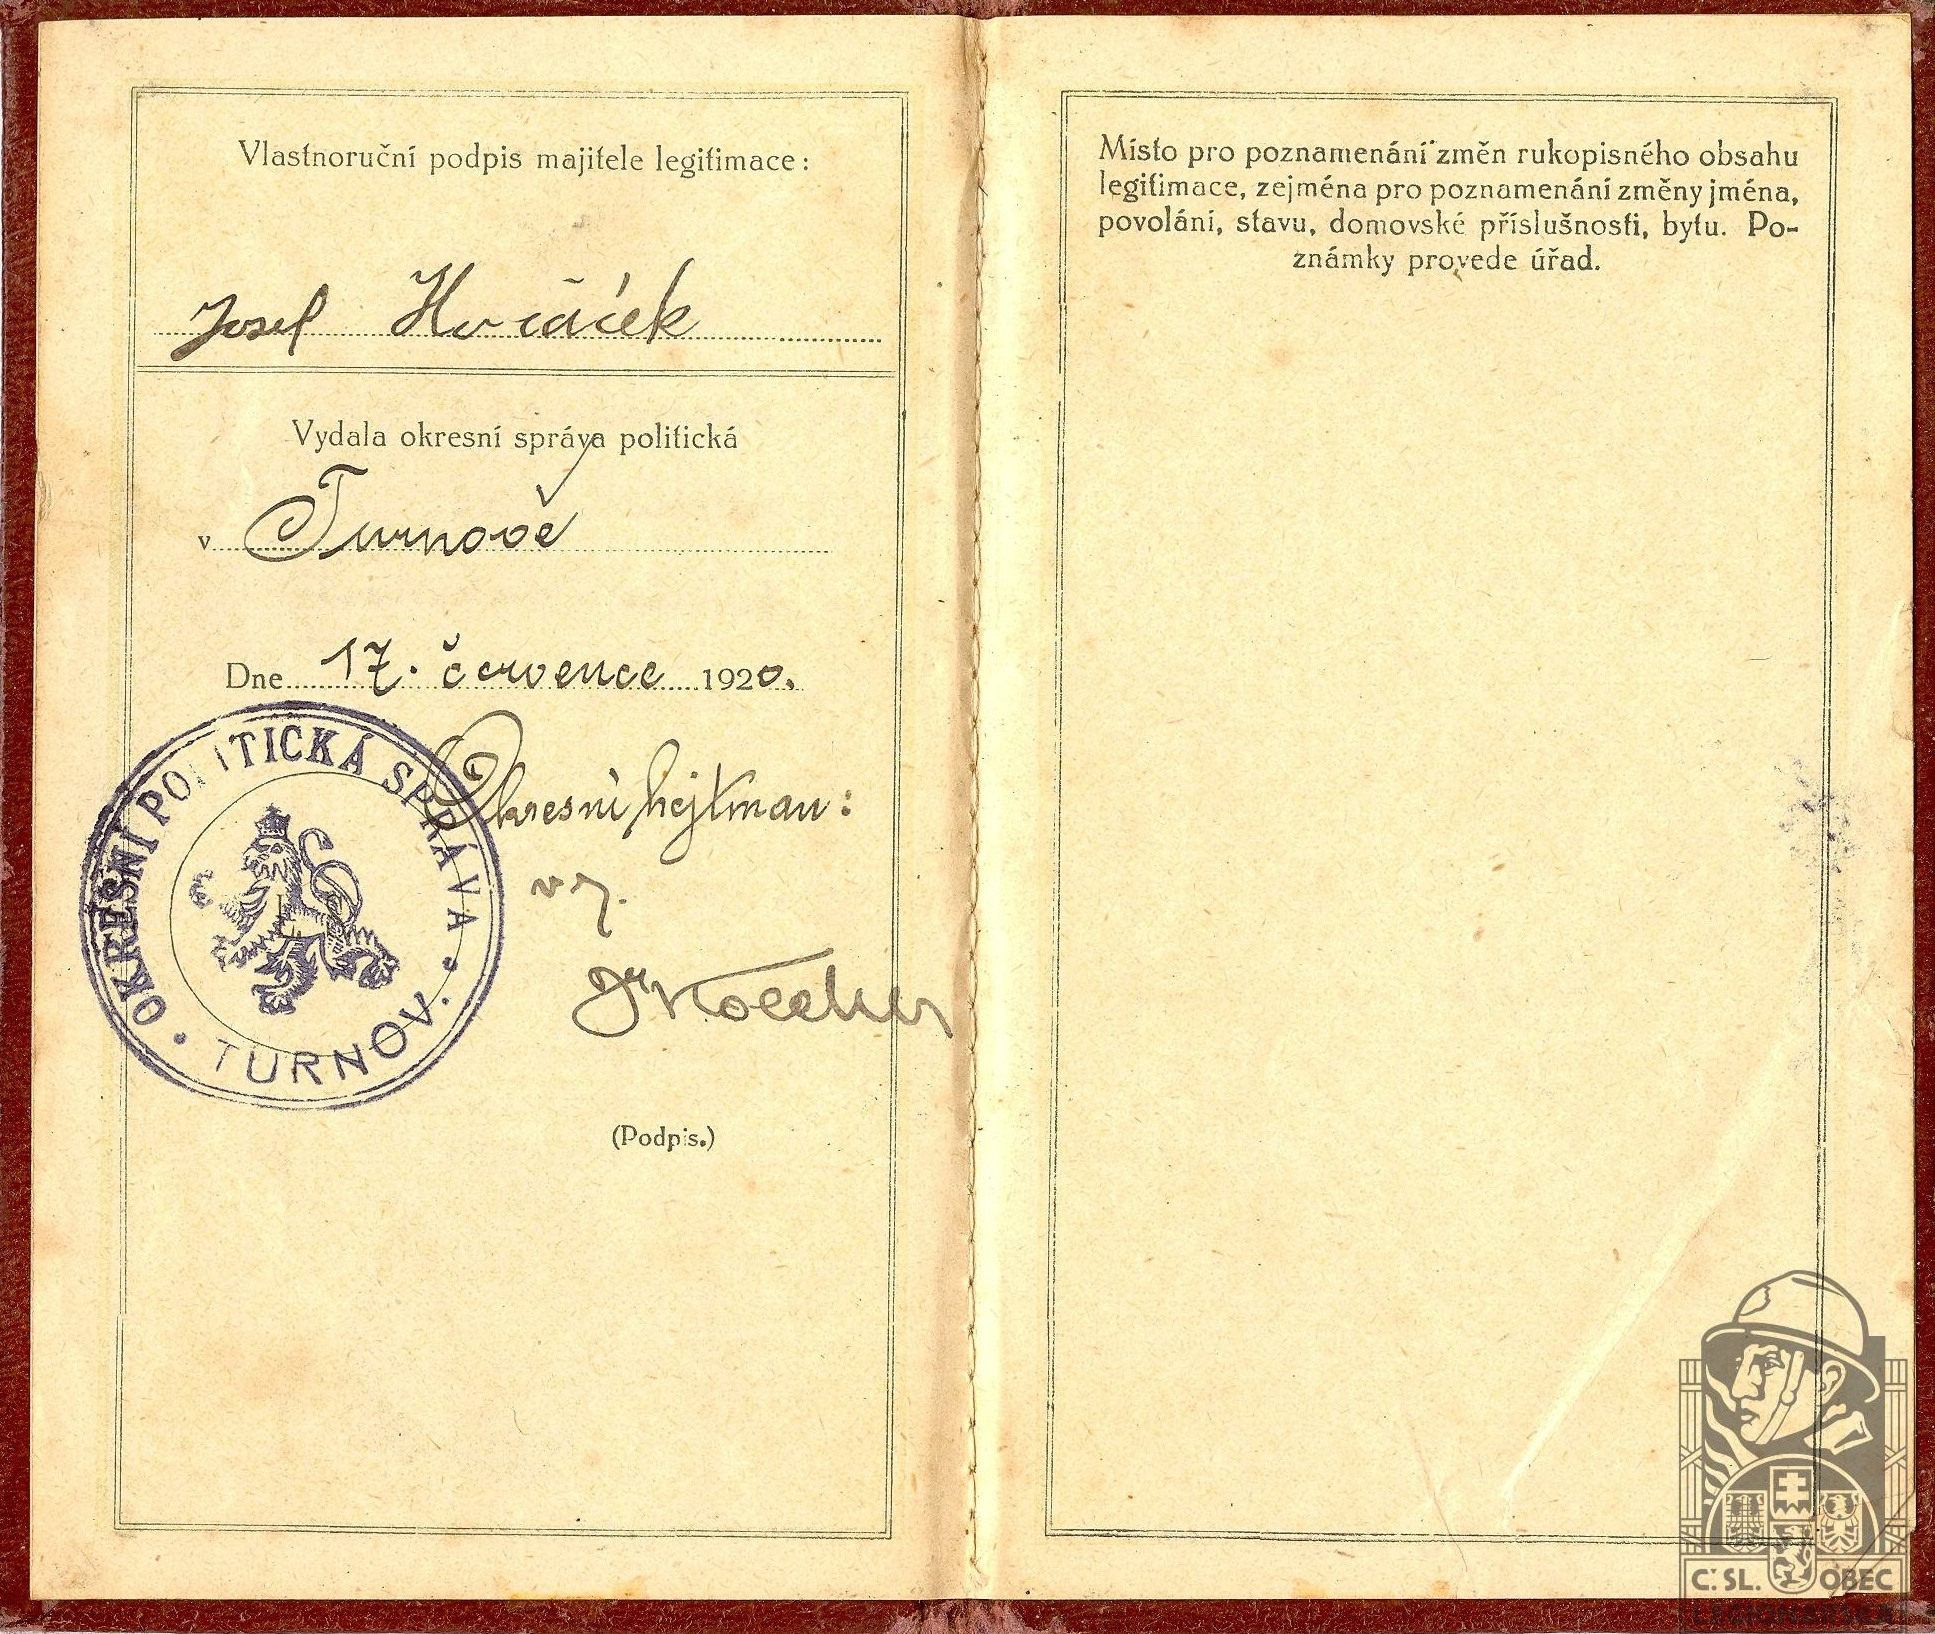 Vlastnoruční podpis majitele legitimace:
Josef
Vydala okresní správa politická
v Turnově
Dne 17. července 1920.
Okresní hejtman:
OKRESNÍ POLITICKÁ SPRÁVA
• TURNOV. •
(Podpis.)
Místo pro poznamenání změn rukopisného obsahu
legitimace, zejména pro poznamenání změny jména,
povolání, stavu, domovské příslušnosti, bytu. Po-
známky provede úřad.
Č. SL. OBEC
LEGIONÁŘSKÁ